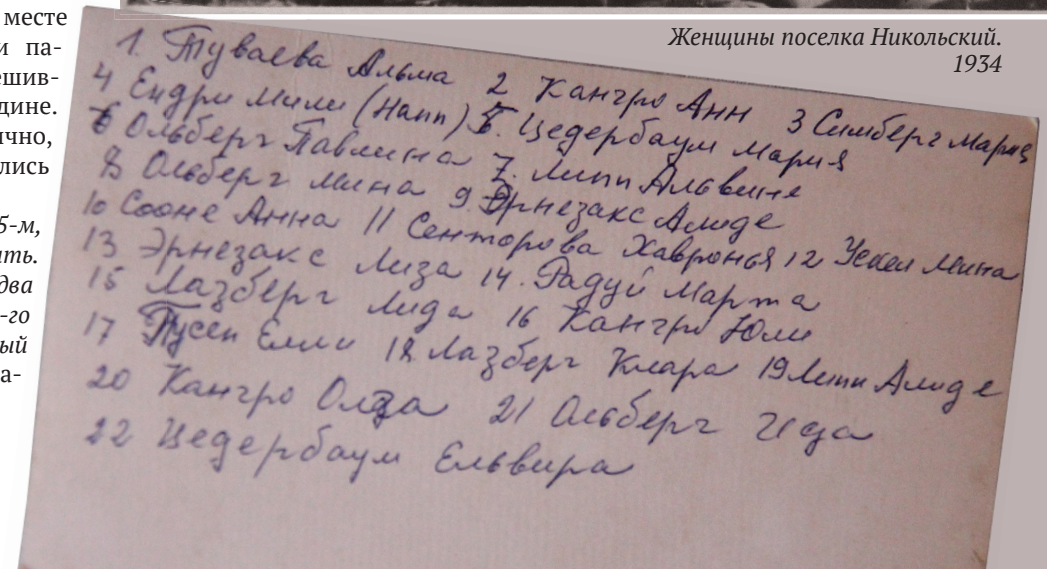 месте
и па-
ешив-
дине.
ично,
лись
5-м,
ать.
два
-го
ый
а-
Женщины поселка Никольский.
1934
1. Туваева Альма 2 Кангро Анн 3 Симберг Мария
4 Ендри Мили (Напп) 5. Цедербаум Мария
6 Ольберг Павлина 7. Липп Альвине
8 Ольберг Мина 9. Эрнезакс Алиде
10 Сооне Анна 11 Сенторова Хавронья 12 Ускел Мина
13 Эрнезакс Лиза 14. Радуй Марта
15 Лазберг Лида 16 Кангро Юли
17 Пусеп Елли 18 Лазберг Клара 19 Липп Алиде
20 Кангро Олга 21 Ольберг Ида
22 Цедербаум Ельвира